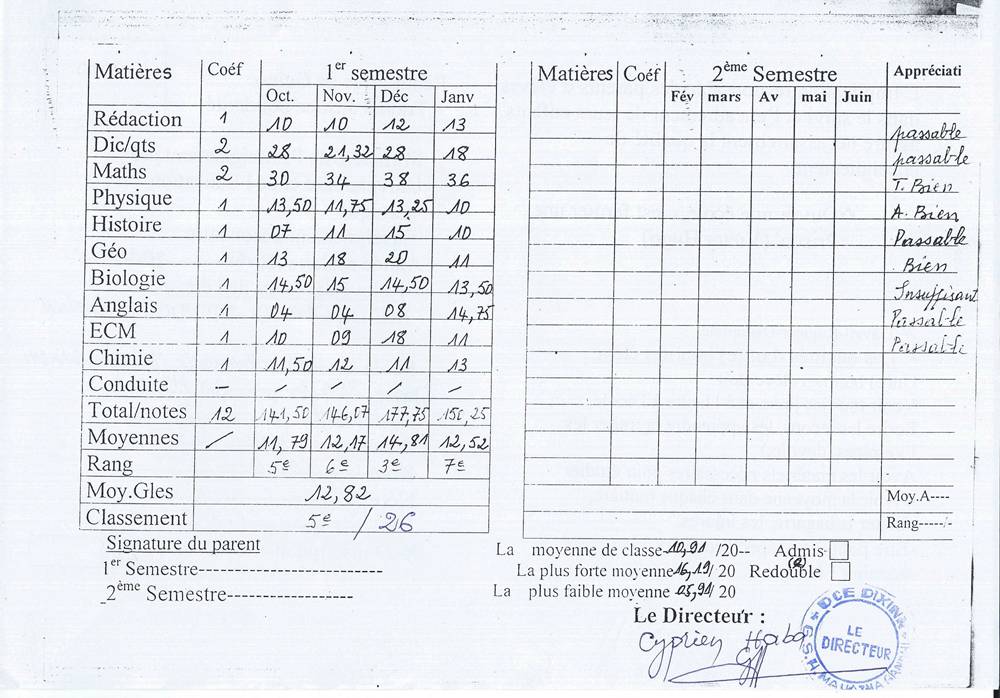 Matières Coéf 1er semestre
Oct. Nov. Déc Janv
Rédaction 1 10 10 12 13
Dic/qts 2 28 21,32 28 18
Maths 2 30 34 38 36
Physique 1 13,50 11,75 13,25 10
Histoire 1 07 11 15 10
Géo 1 13 18 20 11
Biologie 1 14,50 15 14,50 13,50
Anglais 1 04 04 08 14,75
ECM 1 10 09 18 11
Chimie 1 11,50 12 11 13
Conduite — / / / /
Total/notes 12 141,50 146,07 177,75 150,25
Moyennes / 11,79 12,17 14,81 12,52
Rang 5e 6e 3e 7e
Moy.Gles 12,82
Classement 5e / 26
Signature du parent
1er Semestre--------------------
2ème Semestre-----------------
Matières Coéf 2ème Semestre Appréciati
Fév mars Av mai Juin
passable
passable
T. Bien
A. Bien
Passable
Bien
Insuffisant
Passable
Passable
Moy.A----
Rang-----/-
La moyenne de classe-10,91 /20-- Admis-
La plus forte moyenne 16,19/ 20 Redouble
La plus faible moyenne 05,91/ 20
Le Directeur :
Cyprien Haba
DCE DIXINN
LE
DIRECTEUR